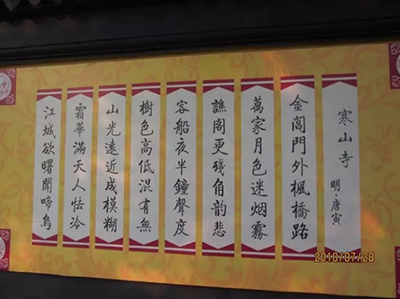 寒山寺
明·唐寅
金閶門外楓橋路
萬家月色迷烟霧
譙閣更殘角韵悲
客船夜半鐘聲度
樹色高低混有無
山光遠近成模糊
霜華滿天人怯冷
江城欲曙聞啼烏
2010/07/28